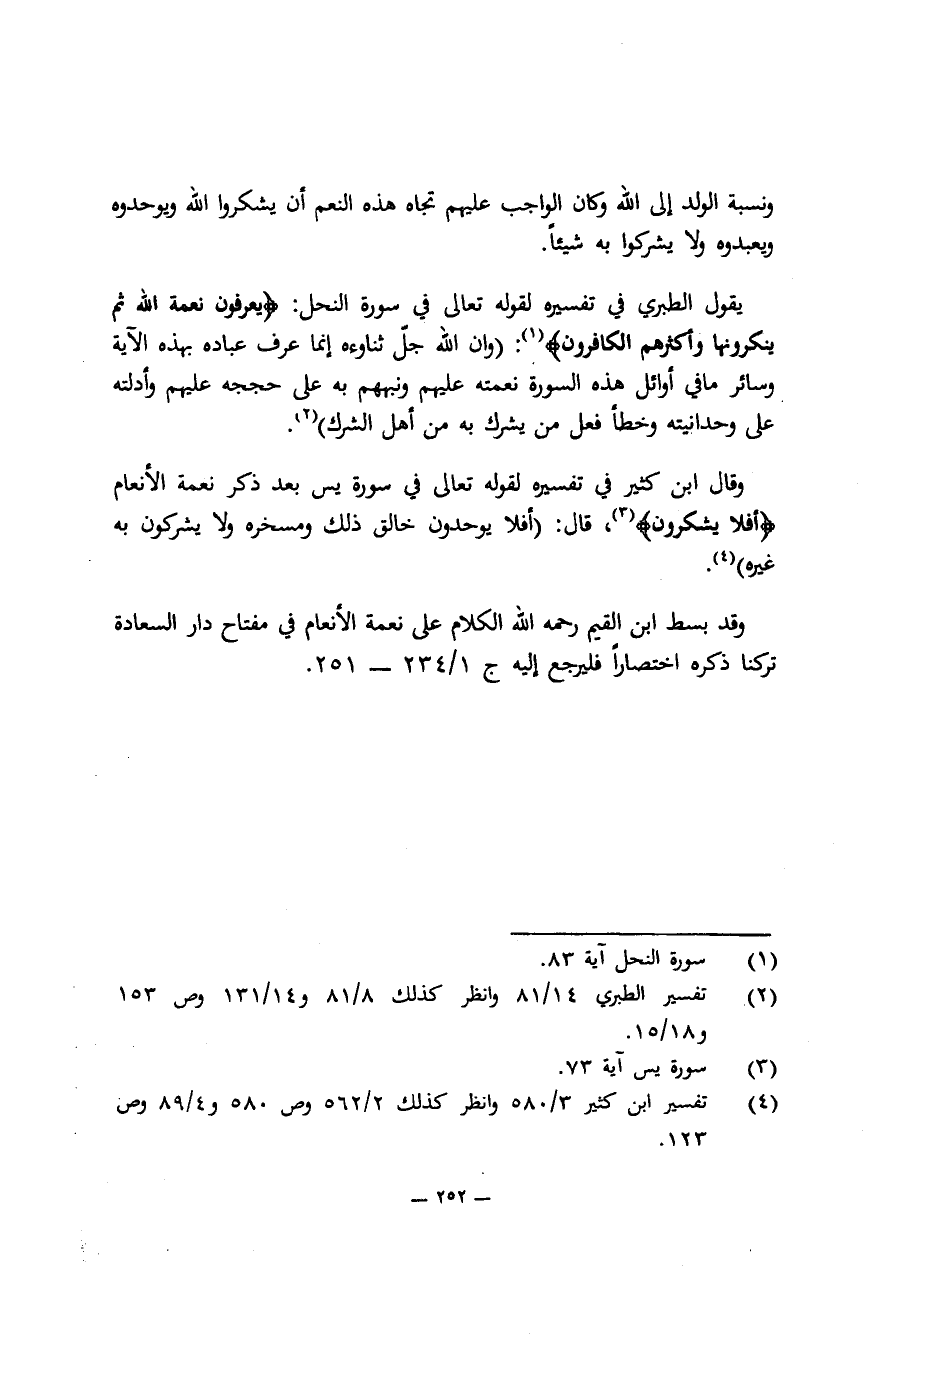 ونسبة الولد إلى الله وكان الواجب عليهم تجاه هذه النعم أن يشكروا الله ويوحدوه
ويعبدوه ولا يشركوا به شيئاً.
يقول الطبري في تفسيره لقوله تعالى في سورة النحل: ﴿يعرفون نعمة الله ثم
ينكرونها وأكثرهم الكافرون﴾(١): (وان الله جلّ ثناوءه إنما عرف عباده بهذه الآية
وسائر مافي أوائل هذه السورة نعمته عليهم ونبههم به على حججه عليهم وأدلته
على وحدانيته وخطأ فعل من يشرك به من أهل الشرك)(٢).
وقال ابن كثير في تفسيره لقوله تعالى في سورة يس بعد ذكر نعمة الأنعام
﴿أفلا يشكرون﴾(٣)، قال: (أفلا يوحدون خالق ذلك ومسخره ولا يشركون به
غيره)(٤).
وقد بسط ابن القيم رحمه الله الكلام على نعمة الأنعام في مفتاح دار السعادة
تركنا ذكره اختصاراً فليرجع إليه ج ٢٣٤/١ — ٢٥١.
(١) سورة النحل آية ٨٣.
(٢) تفسير الطبري ٨١/١٤ وانظر كذلك ٨١/٨ و١٣١/١٤ وص ١٥٣
و١٥/١٨.
(٣) سورة يس آية ٧٣.
(٤) تفسير ابن كثير ٥٨٠/٣ وانظر كذلك ٥٦٢/٢ وص ٥٨٠ و٨٩/٤ وص
١٢٣.
— ٢٥٢ —